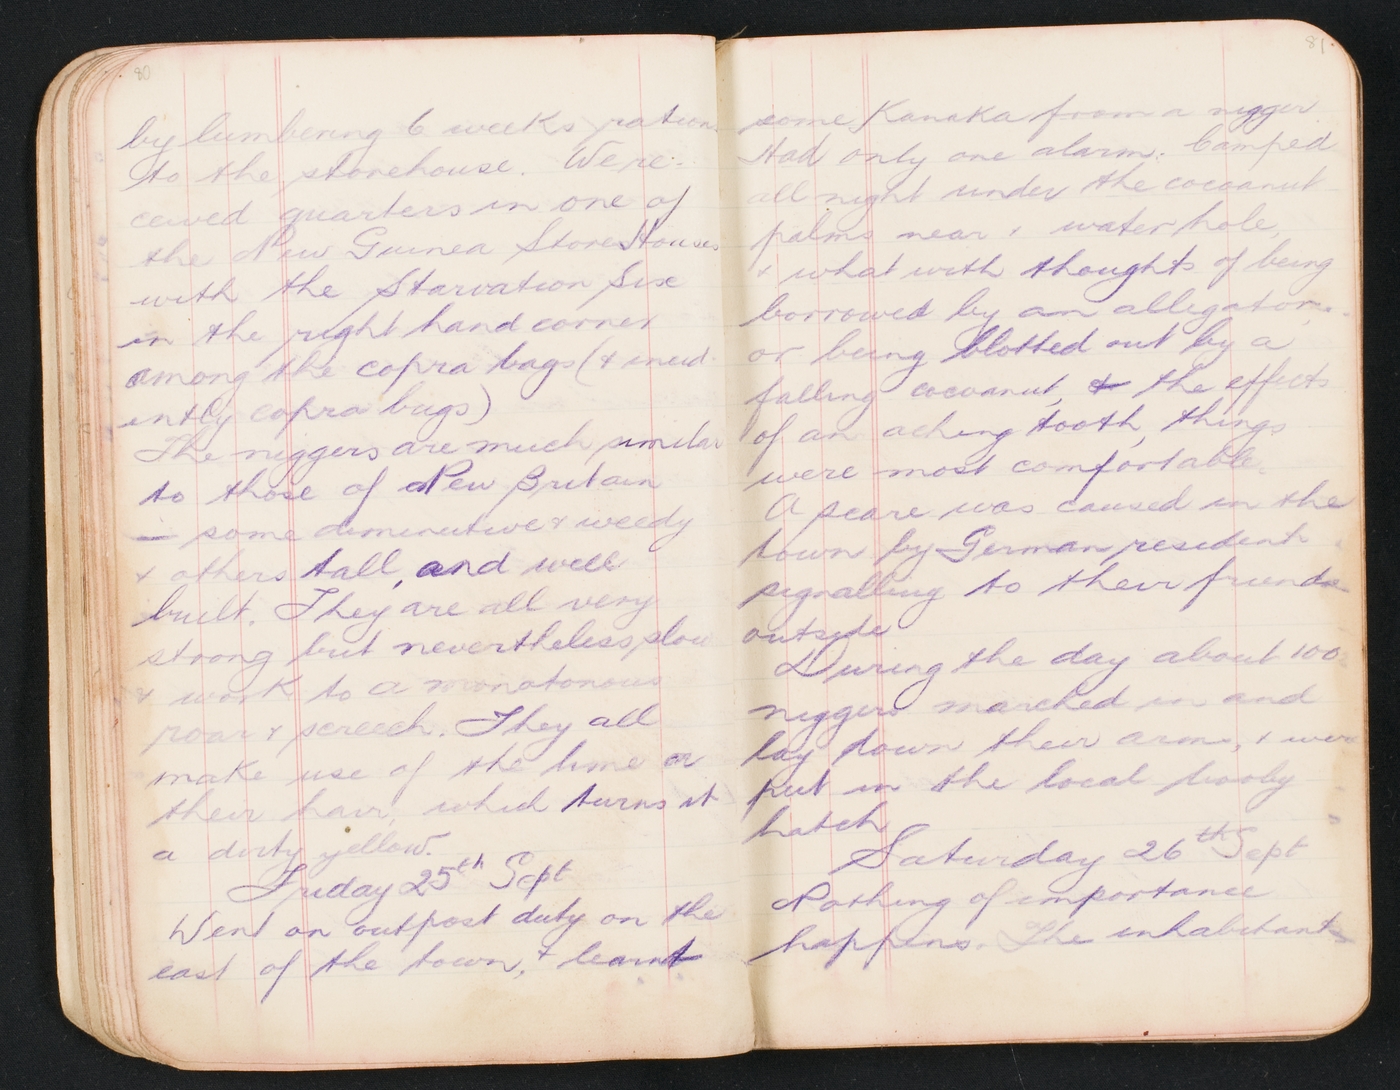 80
by lumbering 6 weeks rations
to the storehouse. We re-
ceived quarters in one of
the New Guinea Store Houses
with the Starvation Six
in the right hand corner
among the copra bags (& incid-
ently copra bugs)
The niggers are much similar
to those of New Britain
— some diminutive & weedy
& others tall, and well
built. They are all very
strong but nevertheless slow
& work to a monotonous
roar & screech. They all
make use of the lime on
their hair, which turns it
a dirty yellow.
Friday 25th Sept
Went on outpost duty on the
east of the town, & learnt
81
some Kanaka from a nigger.
Had only one alarm. Camped
all night under the cocoanut
palms near a water hole,
& what with thoughts of being
borrowed by an alligator,
or being blotted out by a
falling cocoanut, & the effects
of an aching tooth, things
were most comfortable.
A scare was caused in the
town by German residents
signalling to their friends
outside
During the day about 100
niggers marched in and
lay down their arms, & were
put in the local booby
hatch
Saturday 26th Sept
Nothing of importance
happens. The inhabitants